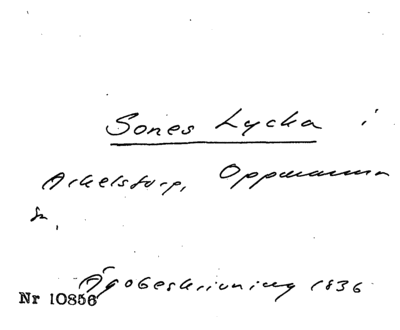 Sones Lycka i
Arkelstorp, Oppmanna
sn,
Ägobeskrivning 1836
Nr 10856